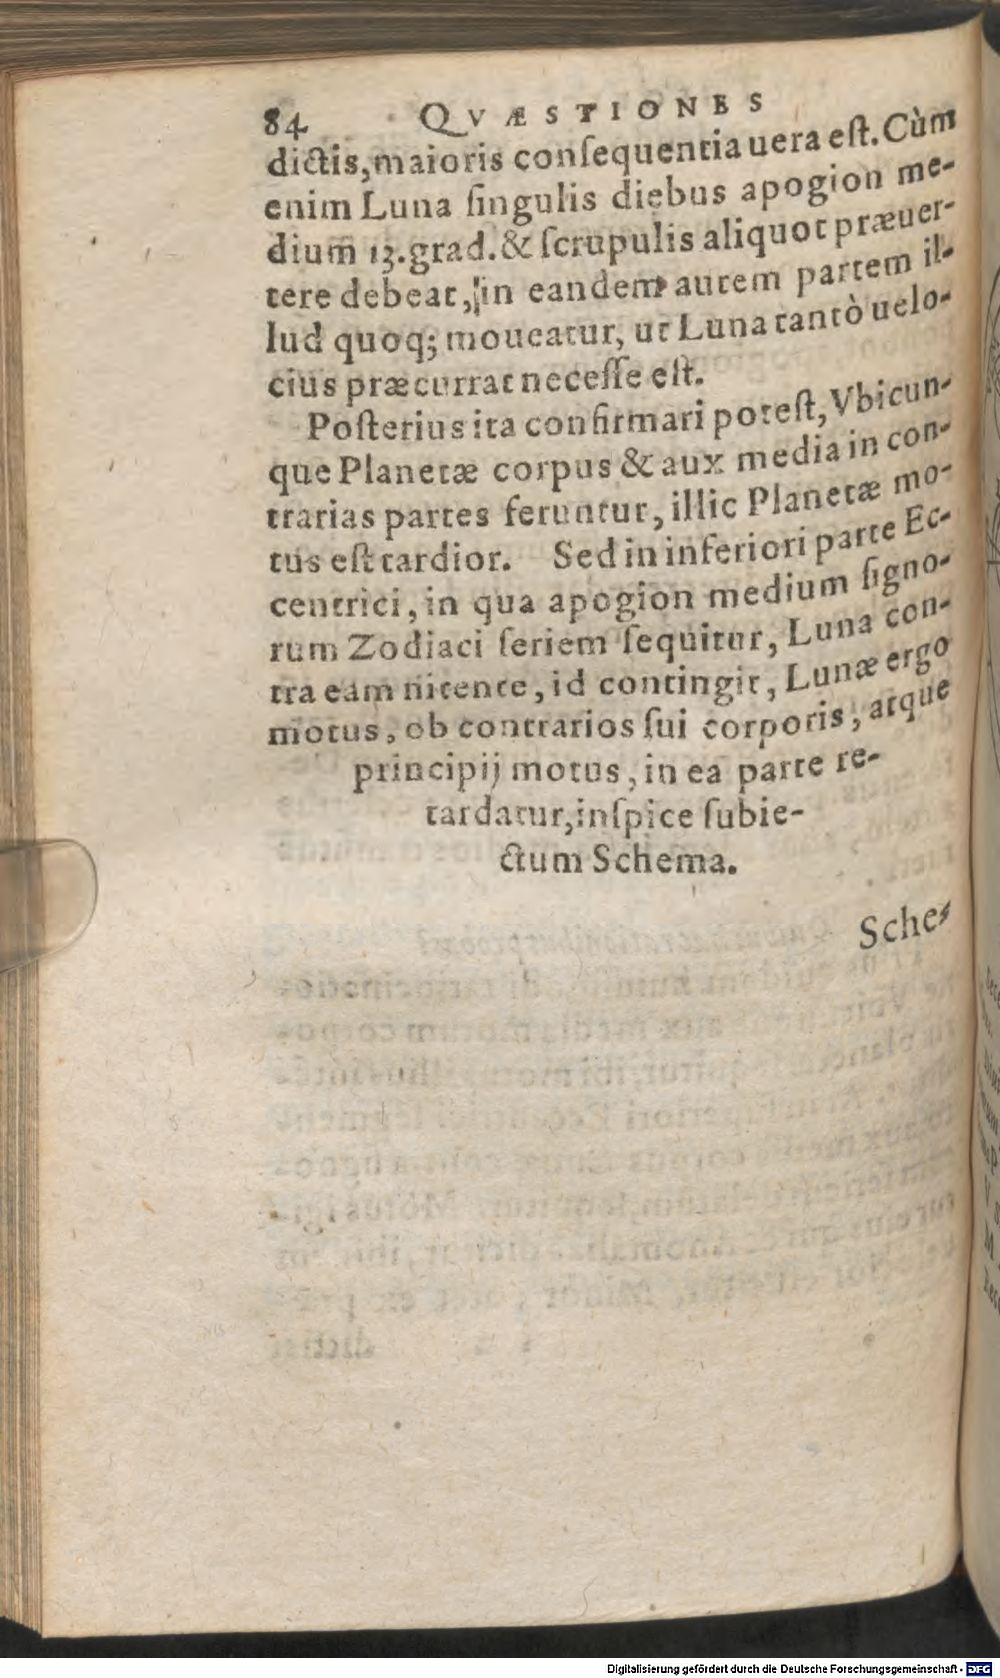 84 QVÆSTIONES
dictis, maioris conſequentia uera eſt. Cùm
enim Luna ſingulis diebus apogion me-
dium 13. grad. & ſcrupulis aliquot præuer-
tere debeat, in eandem autem partem il-
lud quoq; moueatur, ut Luna tantò uelo-
cius præcurrat neceſſe eſt.
Poſterius ita confirmari poteſt, Vbicun-
que Planetæ corpus & aux media in con-
trarias partes feruntur, illic Planetæ mo-
tus eſt tardior. Sed in inferiori parte Ec-
centrici, in qua apogion medium ſigno-
rum Zodiaci ſeriem ſequitur, Luna con-
tra eam nitente, id contingit, Lunæ ergo
motus, ob contrarios ſui corporis, atque
principij motus, in ea parte re-
tardatur, inſpice ſubie-
ctum Schema.
Sche-
Digitalisierung gefördert durch die Deutsche Forschungsgemeinschaft - DFG